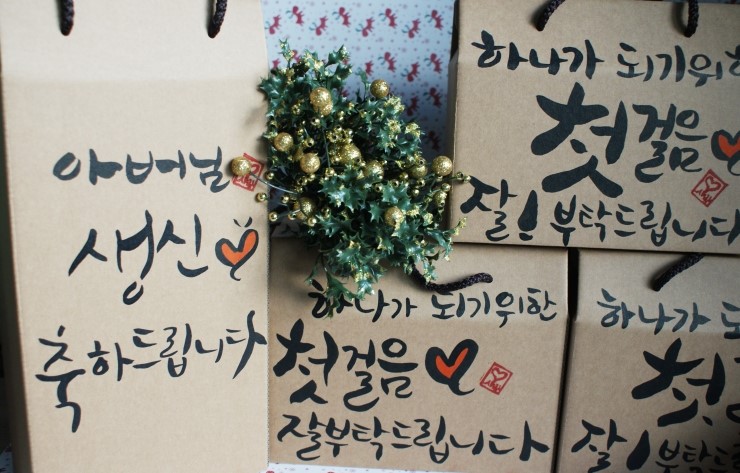 아버님
생신
축하드립니다
하나가 되기위한
첫걸음
잘부탁드립니다
하나가 되기위한
첫걸음
잘! 부탁드립니다
하나가
첫
잘! 부탁